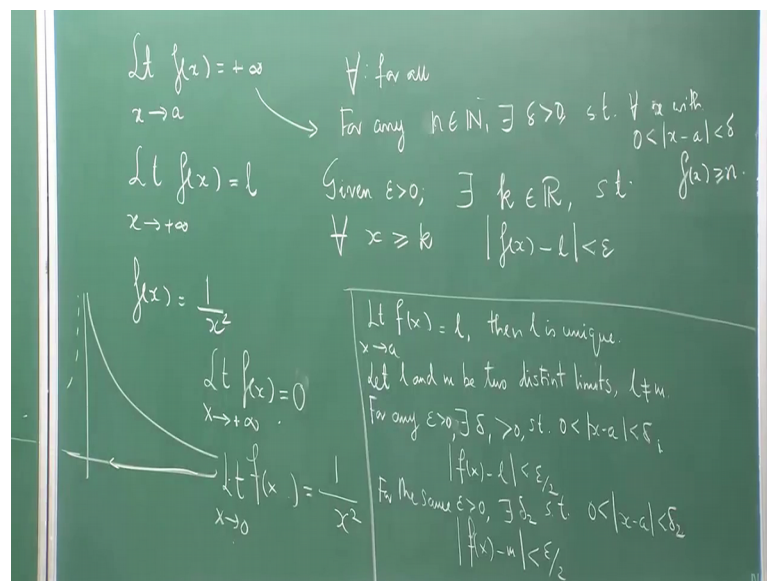 Lt f(x) = +∞
x→a
∀: for all
For any n∈ℕ, ∃ δ>0, st. ∀ x with
0<|x-a|<δ
f(x)≥n.
Lt f(x) = l
x→+∞
Given ε>0; ∃ k∈ℝ, st.
∀ x≥k |f(x)-l|<ε
f(x) = 1/x²
Lt f(x) = 0
x→+∞
Lt f(x) = 1/x²
x→0
Lt f(x) = l, then l is unique.
x→a
Let l and m be two distint limits, l≠m.
For any ε>0, ∃ δ₁>0, st. 0<|x-a|<δ₁
|f(x)-l|<ε/2
For the same ε>0, ∃ δ₂ st. 0<|x-a|<δ₂
|f(x)-m|<ε/2